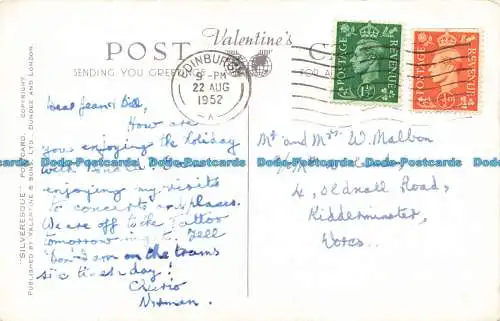 POST
Valentine's
SENDING YOU GREETINGS
EDINBURGH
9 - PM
22 AUG
1952
- A -
POSTAGE
REVENUE
POSTAGE
REVENUE
Dear Jean & Bill,
How are
you enjoying the holiday
with
enjoying my visits
to concerts and places.
We are off to the Tattoo
tomorrow Tell
I am on the trams
six times a day!
Cheerio
Norman.
Mr and Mrs. W. Malbon
4, Oldnall Road,
Kidderminster,
Worcs.
"SILVERESQUE" POSTCARD. COPYRIGHT.
PUBLISHED BY VALENTINE & SONS, LTD., DUNDEE AND LONDON.
Dodo-Postcards Dodo-Postcards Dodo-Postcards Dodo-Postcards